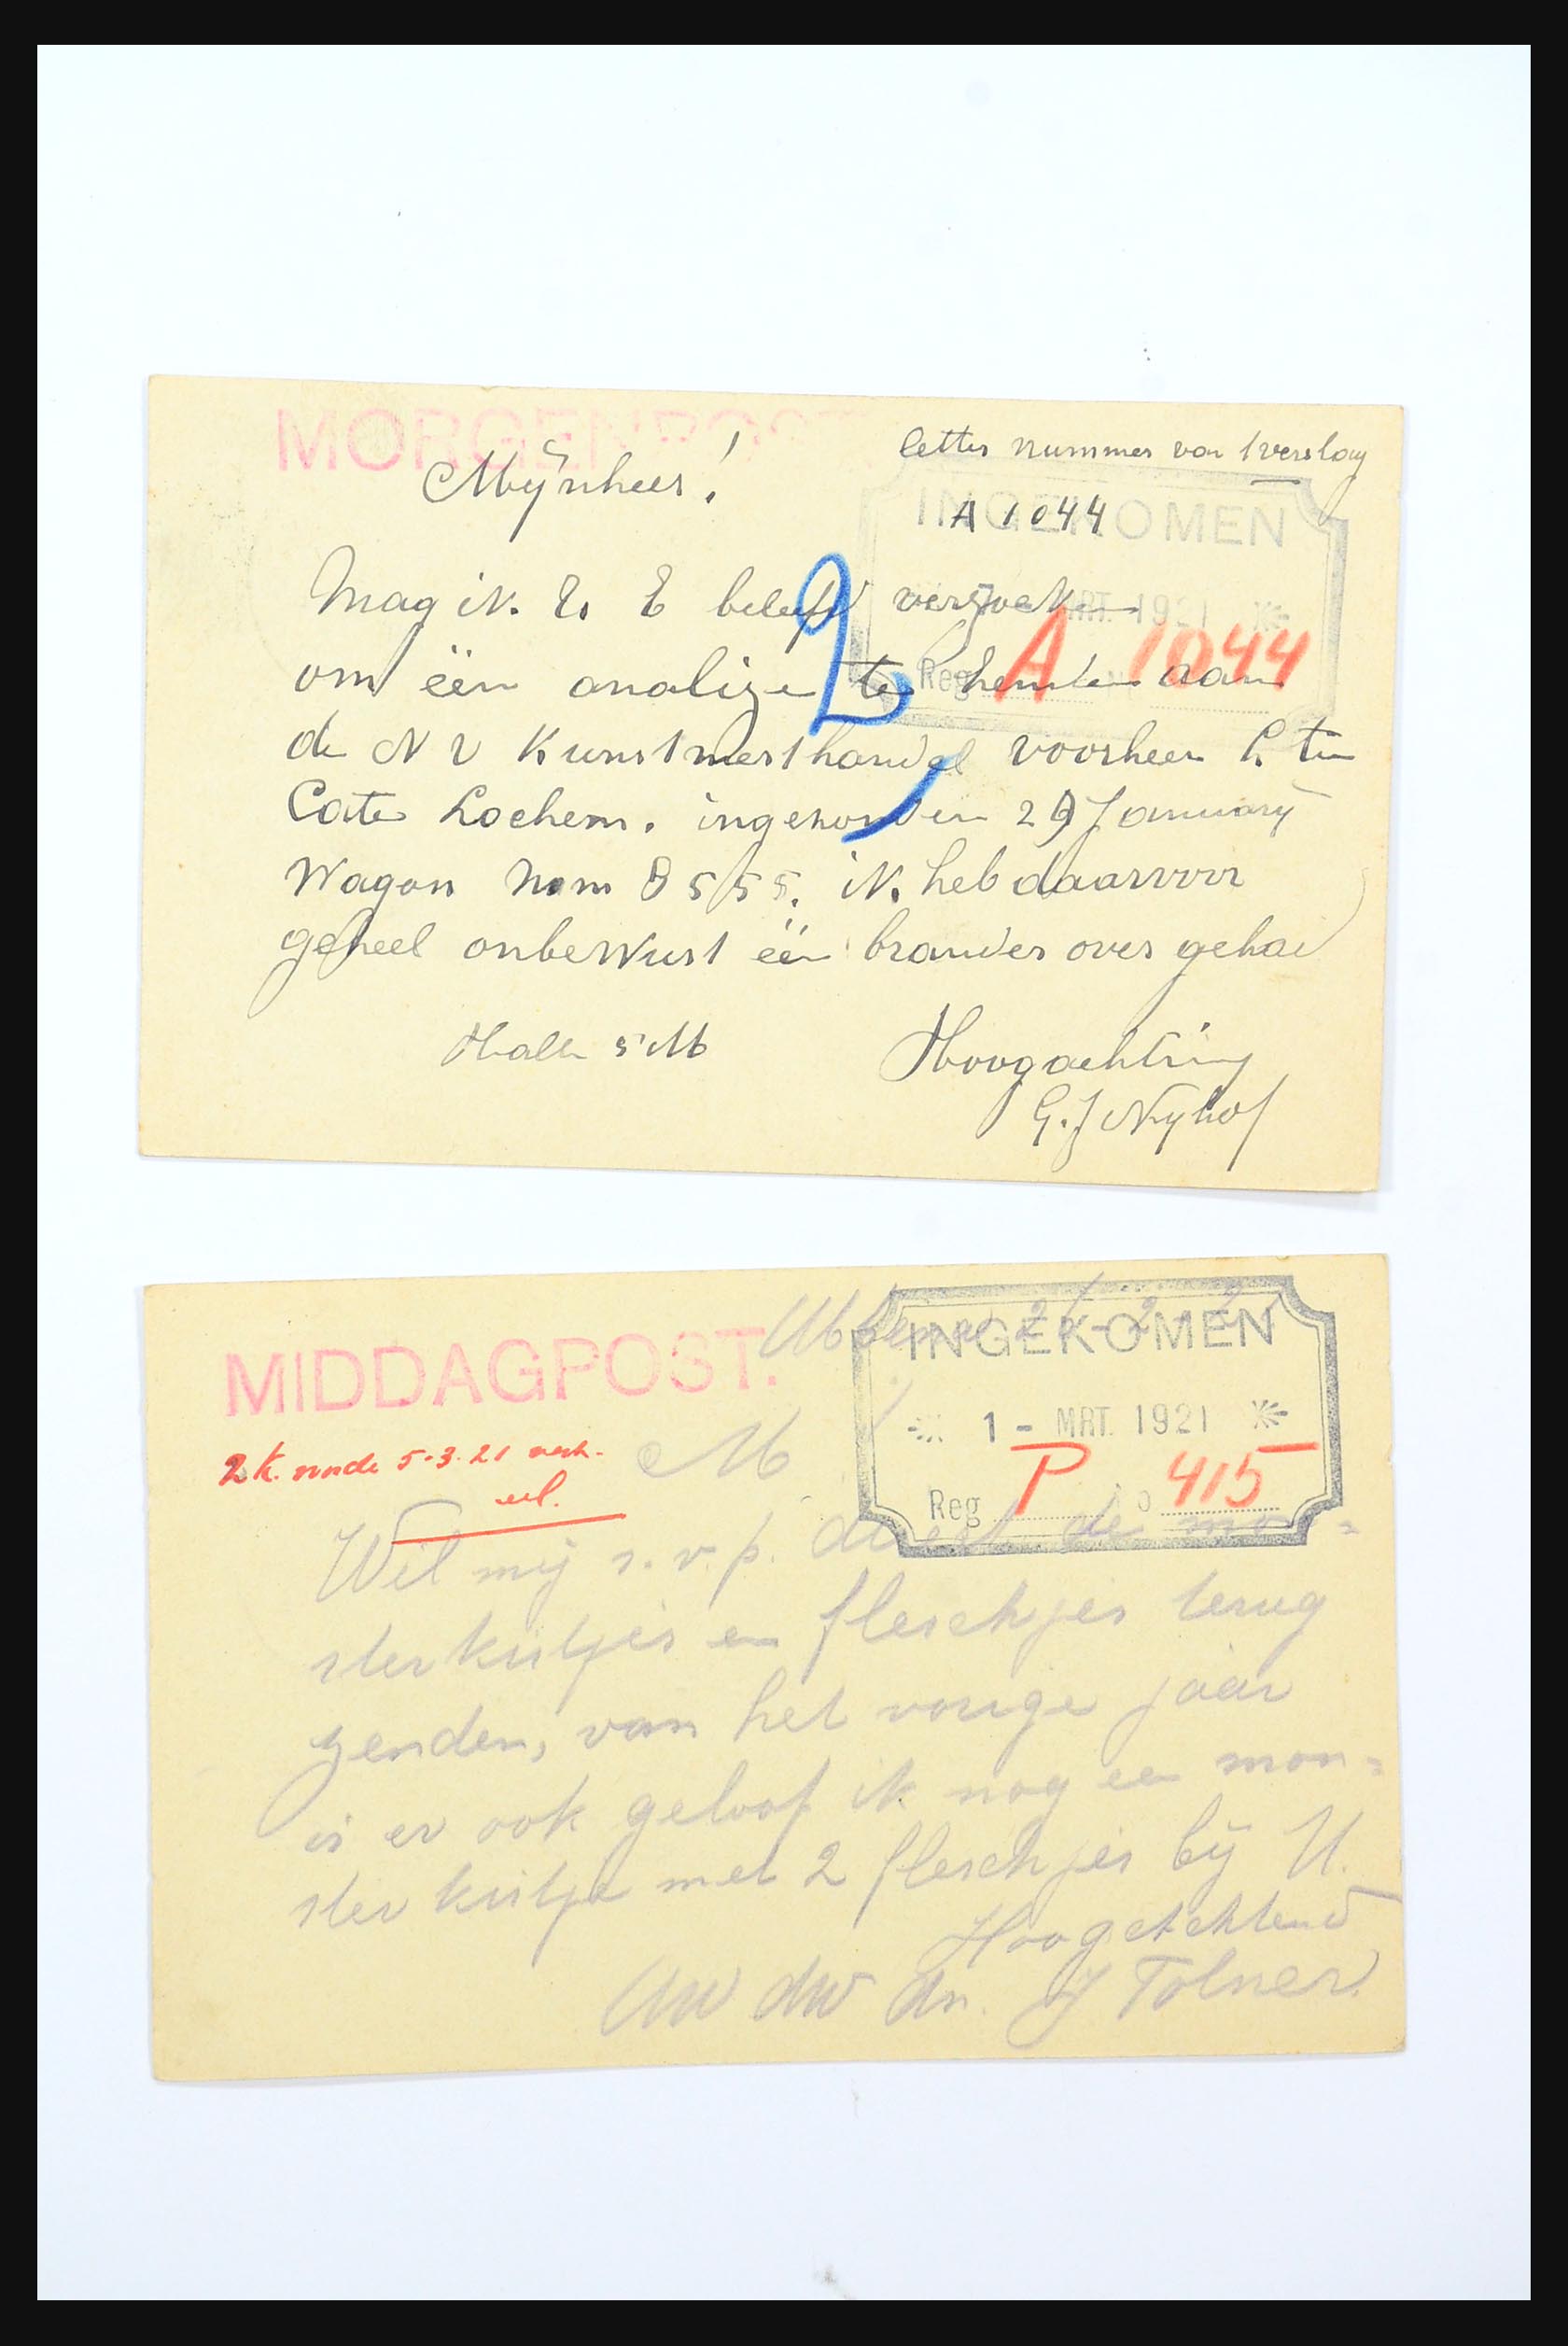 MORGENPOST
letter nummer van 1 verslag
Mijnheer!
INGEKOMEN
A 1044
Mag ik. U. E beleefd verzoeken
MRT. 1921
2
om één analize te zenden aan
Reg A 1044
de NV Kunstmesthandel voorheen P. ten
Cate Lochem. ingezonden 29 January
Wagon Nom 8555. ik. heb daarvoor
geheel onbewust één brander over gehad
Halle 5 M
Hoogachting
G. J Nyhof
21-2-21
INGEKOMEN
MIDDAGPOST.
1 - MRT. 1921
2 k. 5-3.21
M
Reg P No 415
Wil mij s.v.p. de mon=
sterkistjes en fleschjes terug
zenden, van het vorige jaar
is er ook geloof ik nog een mon=
sterkistje met 2 fleschjes bij U.
Hoogachtend
Uw dw dn. J Tolner